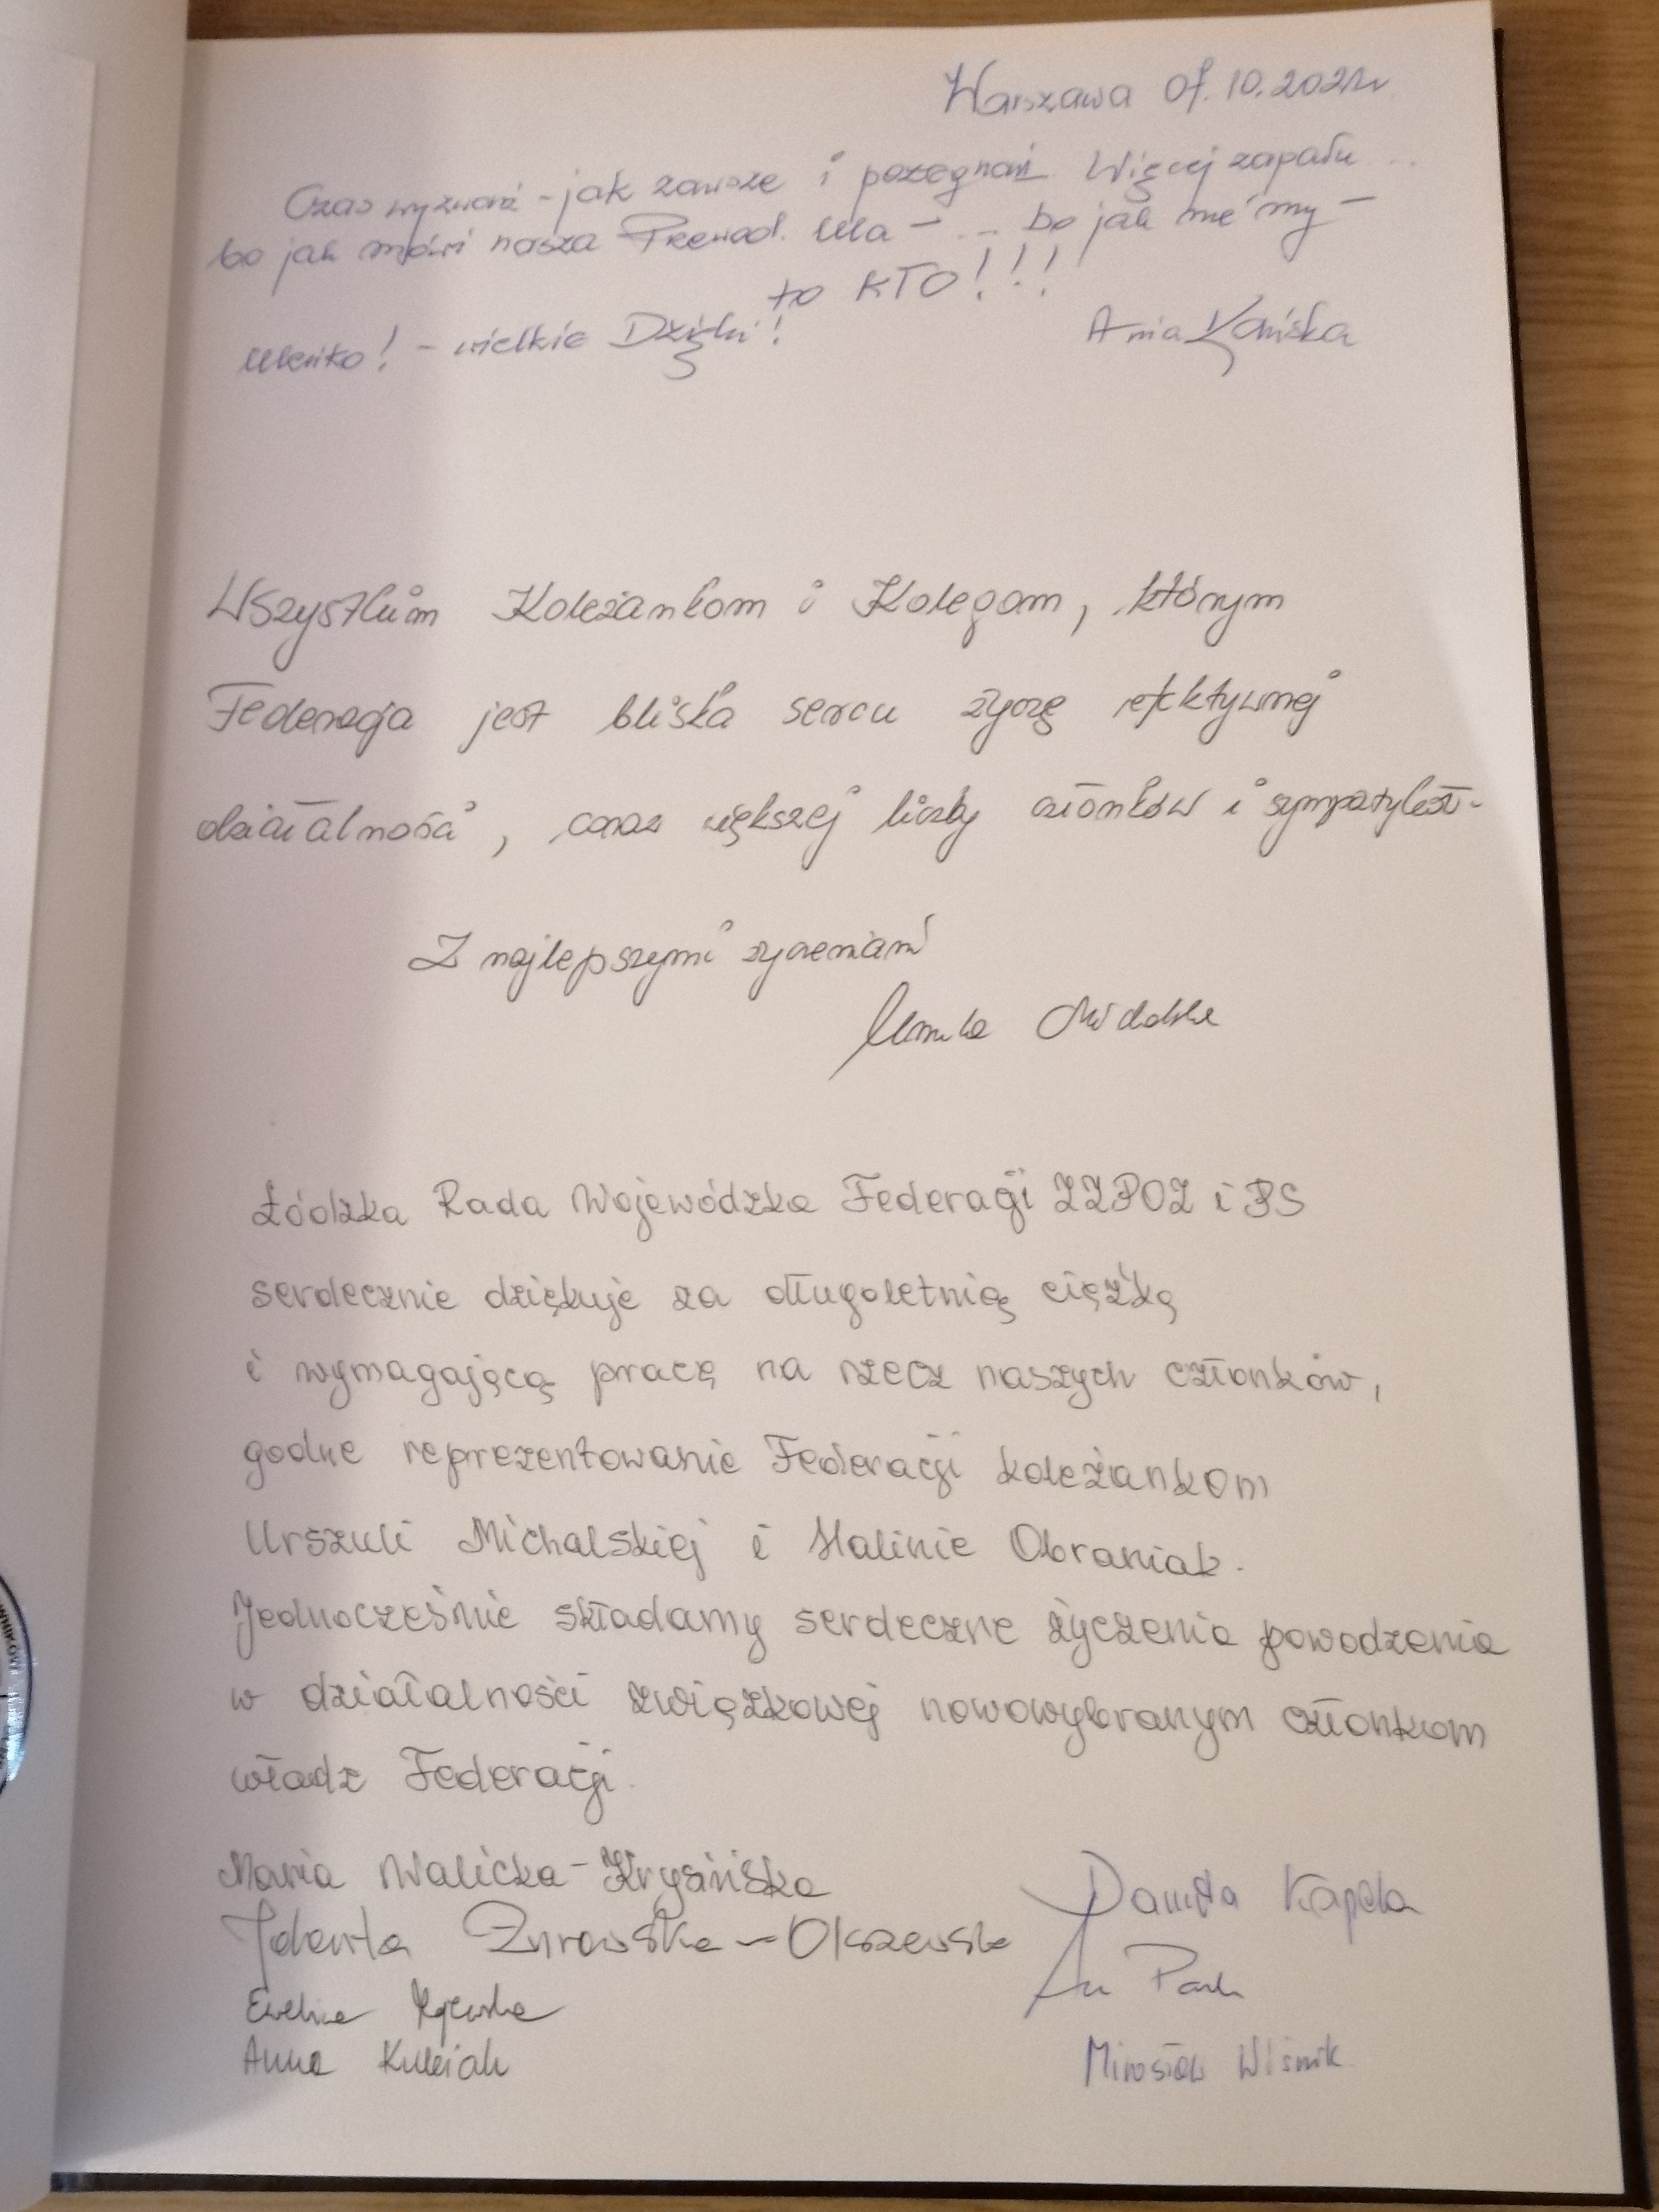 Warszawa 07.10.2021r
Czas wyzwań - jak zawsze i pożegnań Więcej zapału ...
bo jak mówi nasza Przewod. Ula - ... bo jak nie my -
to KTO!!!
Uleńko! - wielkie Dzięki! Ania Kańska
Wszystkim Koleżankom i Kolegom, którym
Federacja jest bliska sercu życzę efektywnej
działalności, coraz większej liczby członków i sympatyków.
Z najlepszymi życzeniami
Urszula Michalska
Łódzka Rada Wojewódzka Federacji ZZPOZ i PS
serdecznie dziękuje za długoletnią ciężką
i wymagającą pracę na rzecz naszych członków,
godne reprezentowanie Federacji koleżankom
Urszuli Michalskiej i Halinie Obraniak.
Jednocześnie składamy serdeczne życzenia powodzenia
w działalności związkowej nowowybranym członkom
władz Federacji.
Maria Walicka-Krysińska
Danuta Kapela
Jolanta Żurowska-Olszewska
Ewelina
Anna
Mirosław Wiśnik